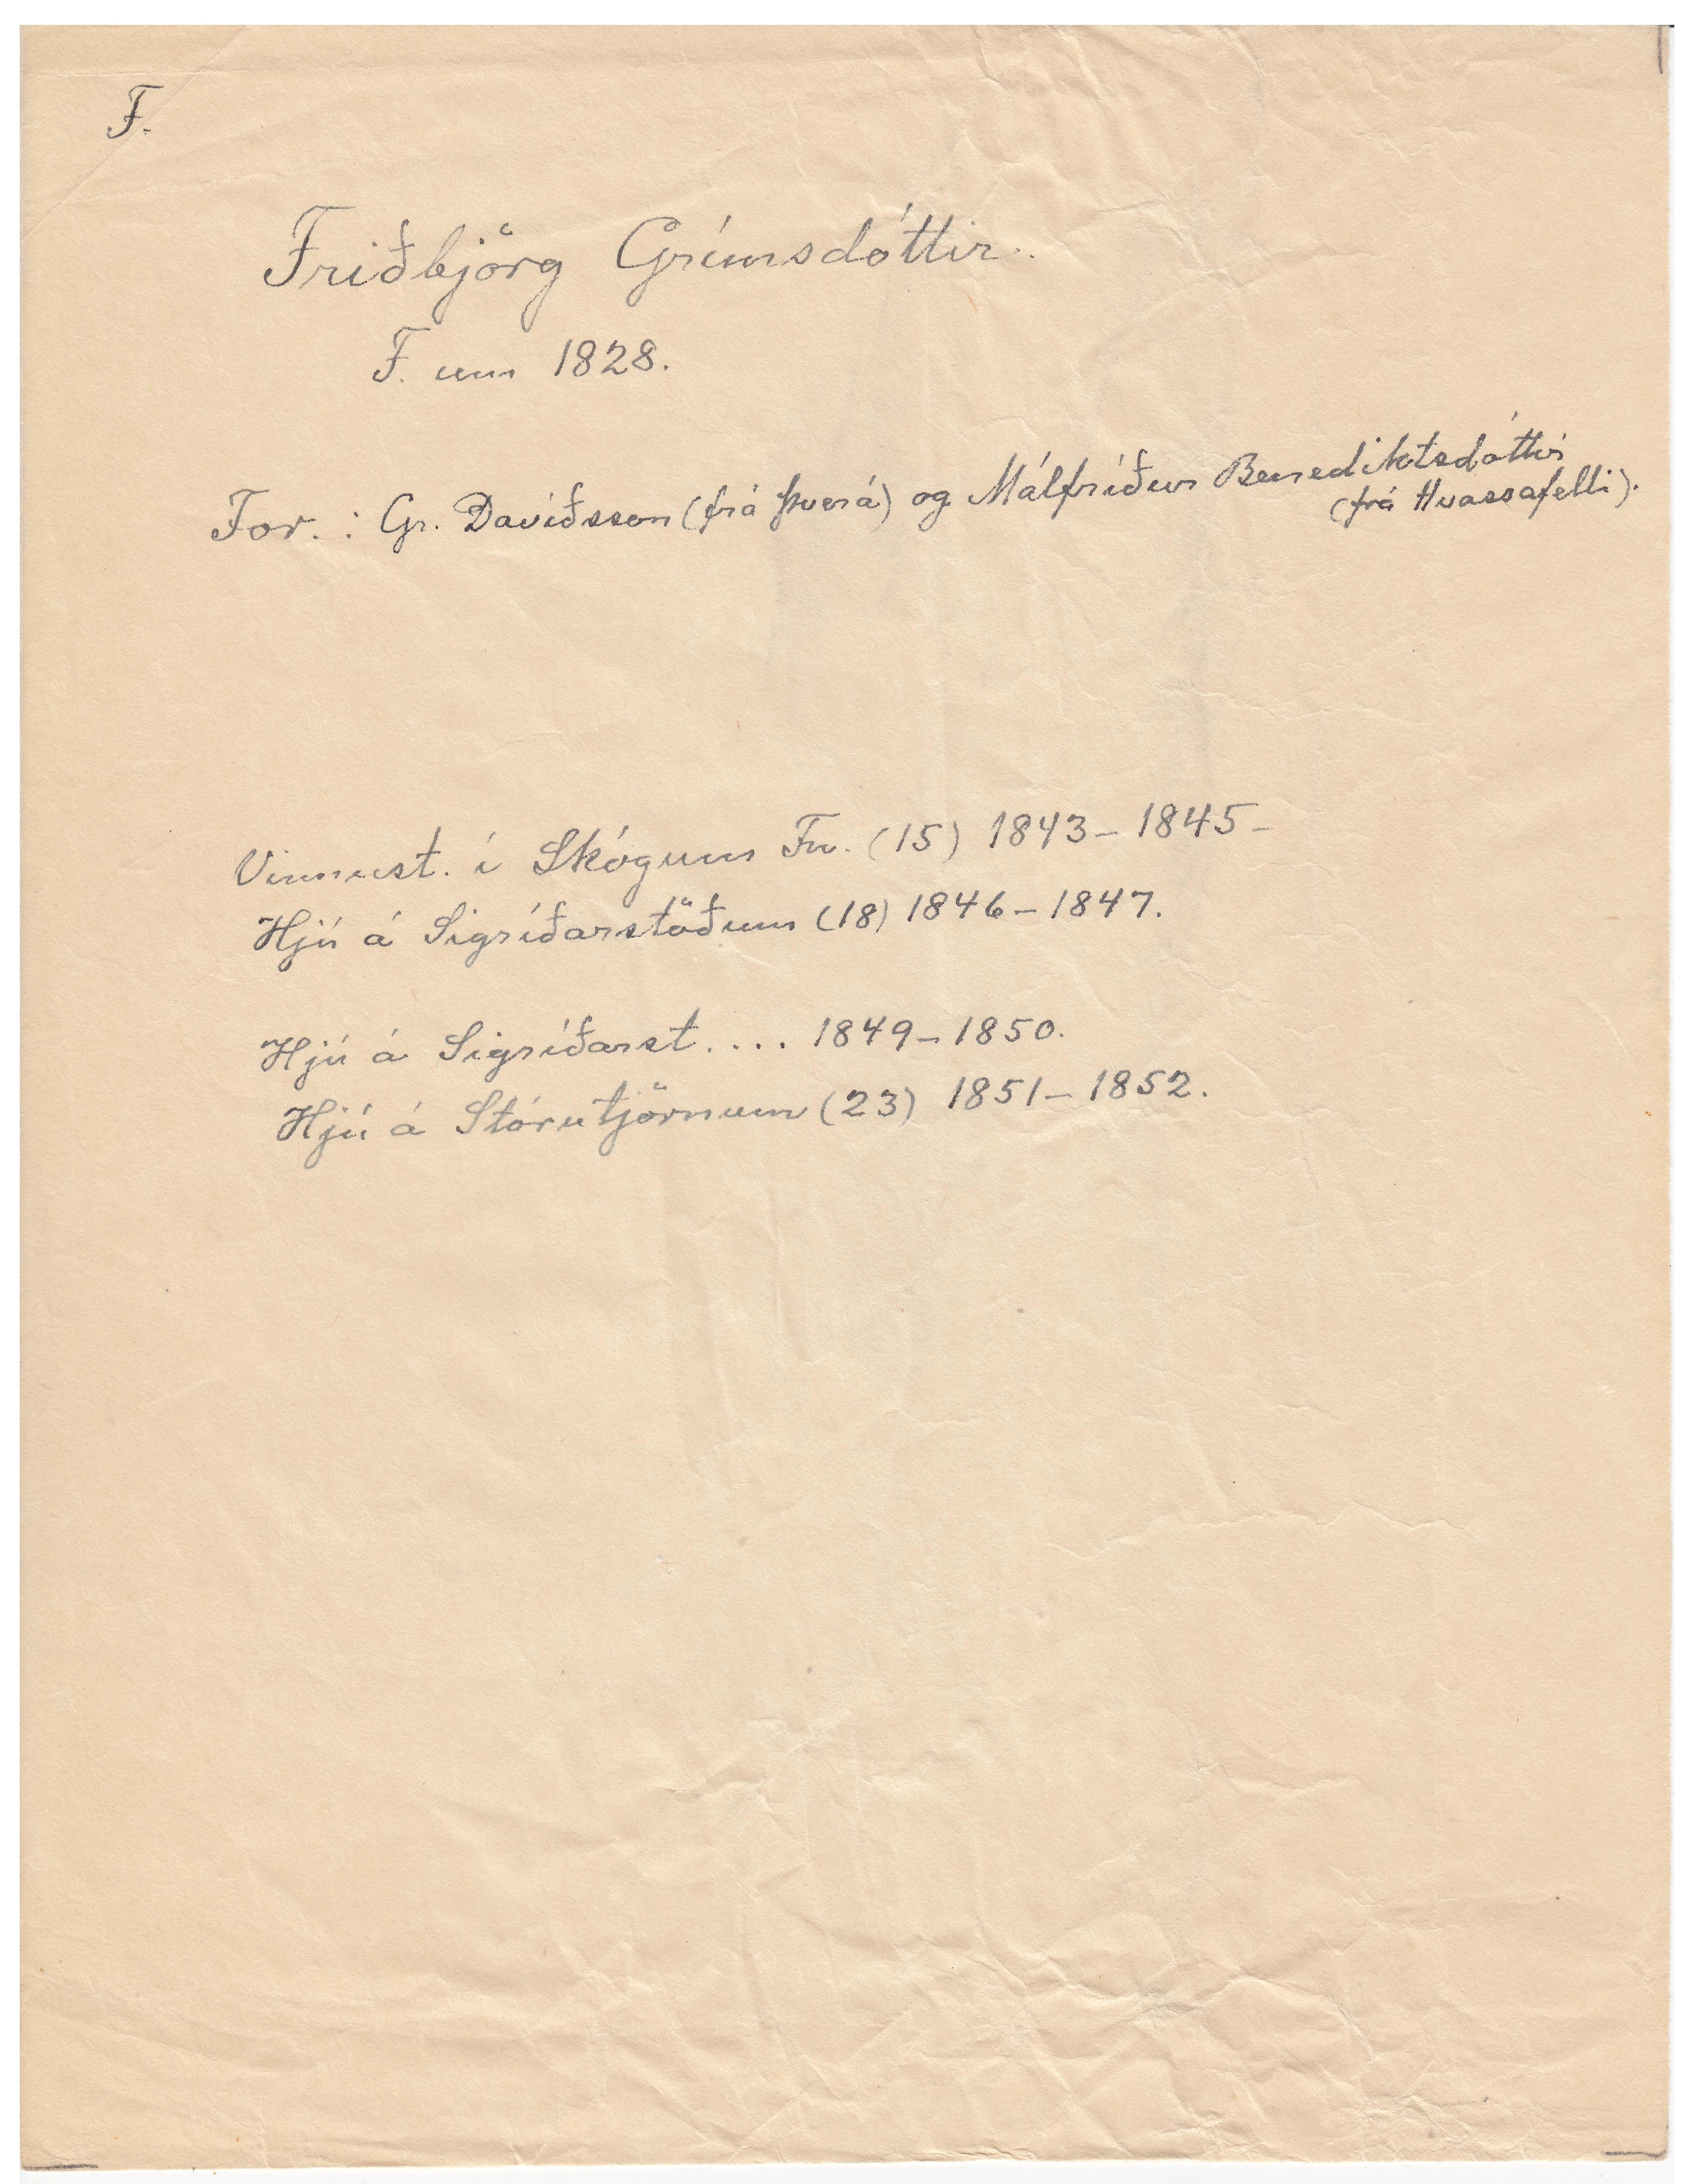 F.
Friðbjörg Grímsdóttir.
F. um 1828.
For.: Gr. Davíðsson (frá Þverá) og Málfríður Benediktsdóttir
(frá Hvassafelli).
Vinnust. í Skógum Fn. (15) 1843-1845-
Hjú á Sigríðarstöðum (18) 1846-1847.
Hjú á Sigríðarst. ... 1849-1850.
Hjú á Stórutjörnum (23) 1851-1852.